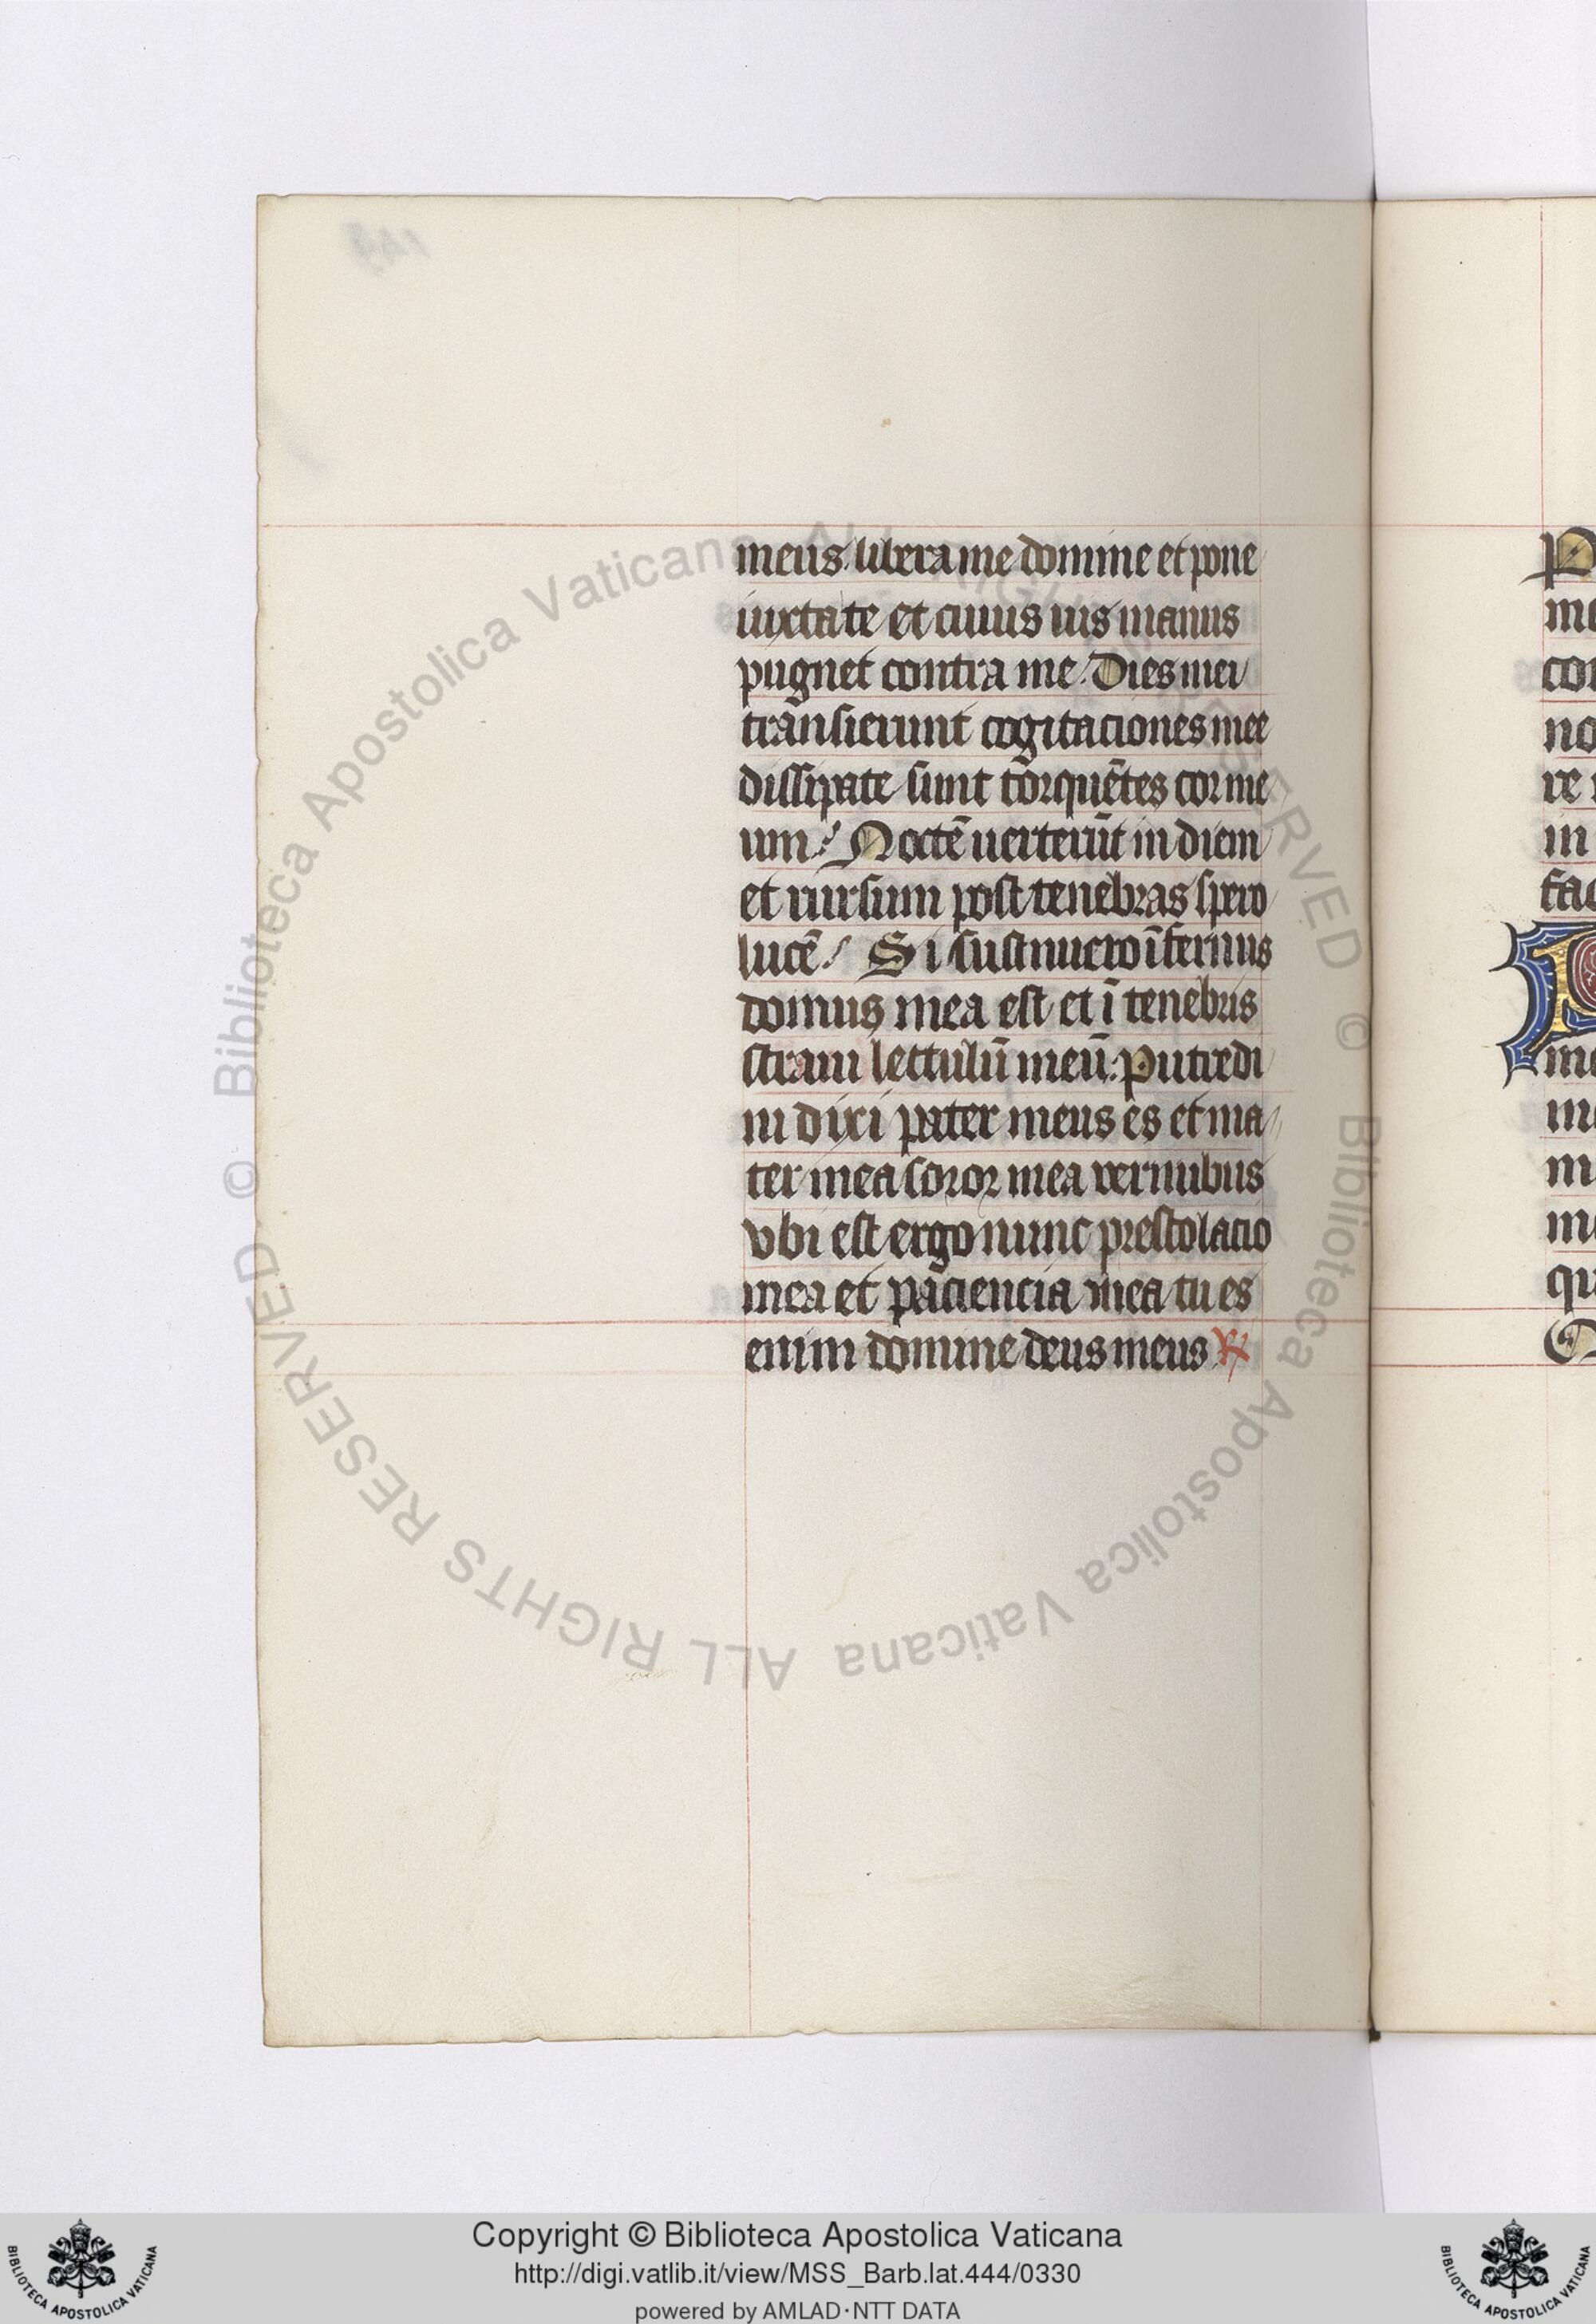 meus. libera me domine et pone
iuxta te et cuius uis manus
pugnet contra me. Dies mei
transierunt cogitaciones mee
dissipate sunt torquẽtes cor me
um. Noctẽ uerterũt in diem
et rursum post tenebras spero
lucẽ. Si sustinuero ĩfernus
domus mea est et ĩ tenebris
straui lectulũ meũ. Putredi
ni dixi pater meus es et ma
ter mea soror mea vermibus
vbi est ergo nunc prestolacio
mea et paciencia mea tu es
enim domine deus meus ℟
P
me
con
no
re
in
fac
me
qu
© Biblioteca Apostolica Vaticana ALL RIGHTS RESERVED © Biblioteca Apostolica Vaticana ALL RIGHTS RESERVED
Copyright © Biblioteca Apostolica Vaticana
http://digi.vatlib.it/view/MSS_Barb.lat.444/0330
powered by AMLAD·NTT DATA
BIBLIOTECA APOSTOLICA VATICANA
BIBLIOTECA APOSTOLICA VATICANA